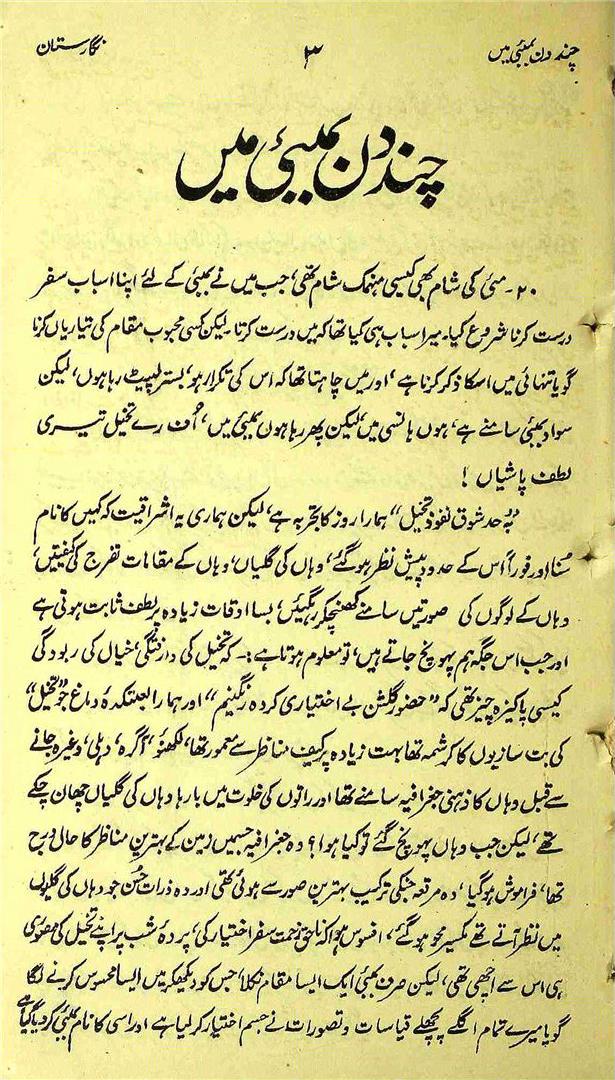 چند دن بمبئی میں ۳ نگارستان
چند دن بمبئی میں
۲۰۔ مئی کی شام بھی کیسی منہمک شام تھی، جب میں نے بمبئی کے لئے اپنا اسباب سفر
درست کرنا شروع کیا۔ میرا سباب ہی کیا تھا کہ میں درست کرتا۔ لیکن کسی محبوب مقام کی تیاریاں کرنا
گویا تنہائی میں اسکا ذکر کرنا ہے، اور میں چاہتا تھا کہ اس کی تکرار ہو، بستر لپیٹ رہا ہوں، لیکن
سواد بمبئی سامنے ہے، ہوں ہانسی میں، لیکن پھر رہا ہوں بمبئی میں، اُف رے تخیل تیری
لطف پاشیاں !
"بہ حد شوق نفوذ تخیل" ہمارا روز کا تجربہ ہے، لیکن ہماری یہ اشراقیت کہ کہیں کا نام
سُنا اور فوراً اُس کے حدود پیش نظر ہو گئے، وہاں کی گلیاں، وہاں کے مقامات تفرج کی کیفیتیں،
وہاں کے لوگوں کی صورتیں سامنے کھنچکر رہگئیں، بسا اوقات زیادہ پر لطف ثابت ہوتی ہے
اور جب اس جگہ ہم پہونچ جاتے ہیں، تو معلوم ہوتا ہے :۔ کہ تخیل کی وارفتگی، خیال کی ربودگی
کیسی پاکیزہ چیز تھی کہ "حضور گلشن بے اختیاری کردہ رنگینم" اور ہمارا لعبتکدۂ دماغ جو "تخیل"
کی بت سازیوں کا کرشمہ تھا بہت زیادہ پر کیف مناظر سے معمور تھا، لکھنؤ، آگرہ، دہلی، وغیرہ جانے
سے قبل وہاں کا ذہنی جغرافیہ سامنے تھا اور راتوں کی خلوت میں بارہا وہاں کی گلیاں چھان چکے
تھے، لیکن جب وہاں پہونچ گئے تو کیا ہوا؟ وہ جغرافیہ جسمیں زمین کے بہترین مناظر کا حال درج
تھا، فراموش ہو گیا، وہ مرقعہ جسکی ترکیب بہترین صور سے ہوئی تھی اور وہ ذرات حُسن جو وہاں کی گلیوں
میں نظر آتے تھے یکسیر محو ہو گئے، افسوس ہوا کہ ناحق زحمت سفر اختیار کی، پردۂ شب پر اپنے تخیل کی مصوری
ہی اس سے اچھی تھی، لیکن صرف بمبئی ایک ایسا مقام نکلا، جس کو دیکھکر میں ایسا محسوس کرنے لگا
گویا میرے تمام اگلے پچھلے قیاسات و تصورات نے جسم اختیار کر لیا ہے اور اسی کا نام بمبئی کر دیا گیا ہے